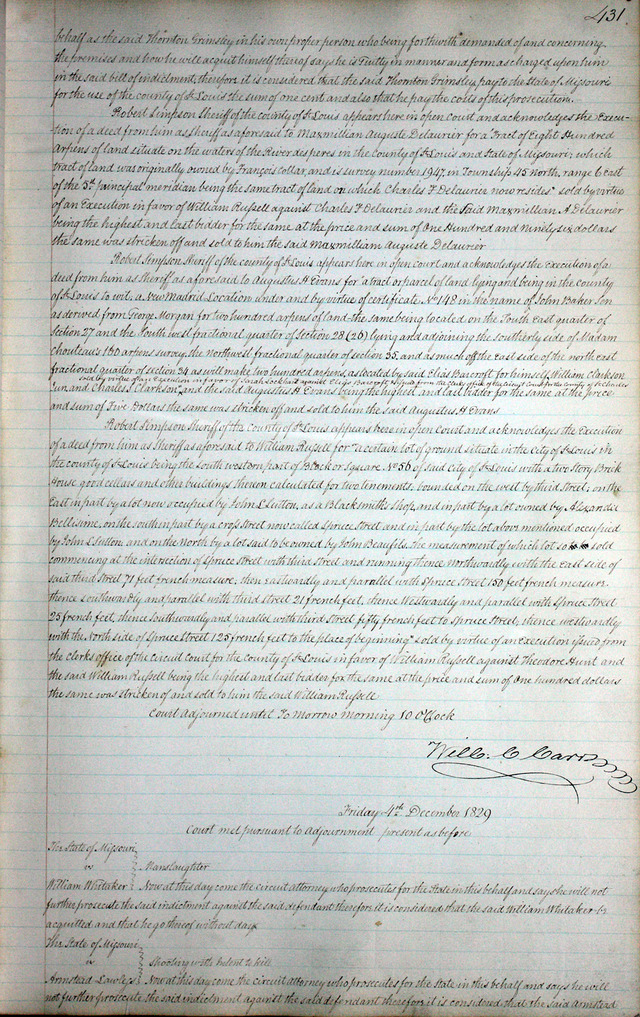 431
behalf as the said Thornton Grimsley in his own proper person who being forthwith demanded of and concerning
the premises and how he will acquit himself thereof says he is Guilty in manner and form as charged upon him
in the said bill of indictment, therefore it is considered that the said Thornton Grimsley pay to the State of Missouri
for the use of the county of St Louis the sum of one cent and also that he pay the costs of this prosecution.
Robert Simpson Sheriff of the county of St Louis appears here in open court and acknowledges the Execu-
tion of a deed from him as Sheriff as aforesaid to Maxmilian Auguste Delaurier for a Tract of Eight Hundred
Arpens of land situate on the waters of the River desperes in the County of St Louis and State of Missouri; which
tract of land was originally owned by François collar, and is survey number 1947, in Township 45 north, range 6 east
of the 5th principal meridian being the same tract of land on which Charles F Delaurier now resides" sold by virtue
of an Execution in favor of William Russell against Charles F Delaurier and the said Maxmillian A Delaurier
being the highest and last bidder for the same at the price and sum of One Hundred and Ninety six dollars
the same was stricken off and sold to him the said Maxmilliam Auguste Delaurier
Robert Simpson Sheriff of the county of St Louis appears here in open court and acknowledges the Execution of a
deed from him as Sheriff as aforesaid to Augustus H Evans for "a tract or parcel of land lying and being in the county
of St Louis to wit, a New Madrid Location under and by virtue of certificate No 148 in the name of John Baker Sen
as derived from George Morgan for two hundred arpens of land the same being located on the South East quarter of
Section 27 and the South west fractional quarter of Section 28 (26) lying and adjoining the southerly side of Madam
Chouteaus 150 arpens survey, the northwest fractional quarter of section 35, and as much off the East side of the north east
fractional quarter of section 34 as will make two hundred arpens, as located by said Elias Bancroft for himself, William Clarkson
sold by virtue of an Execution in favor of Sarah Lockhart against Elias Bancroft issued from the clerks office of the Circuit Court for the county of St Charles
Jun and Charles S Clarkson", and the said Augustus H Evans being the highest and last bidder for the same at the price
and sum of Five Dollars the same was stricken off and sold to him the said Augustus H Evans
Robert Simpson Sheriff of the county of St Louis appears here in open Court and acknowledges the Execution
of a deed from him as Sheriff as aforesaid to William Russell for "a certain lot of ground situate in the city of St Louis in
the county of St Louis being the south western part of Block or Square No 56 of said city of St Louis with a two story Brick
House good cellars and other buildings thereon calculated for two tenements, bounded on the west by third Street; on the
East in part by a lot now occupied by John L Sutton, as a Blacksmiths shop, and in part by a lot owned by Alexander
Bellisime, on the south in part by a cross street now called Spruce Street and in part by the lot above mentioned occupied
by John L Sutton; and on the North by a lot said to be owned by John Beaufils, the measurement of which lot so sold
commencing at the intersection of Spruce Street with third Street and running thence northwardly with the East side of
said third Street 71 feet french measure, then eastwardly and parralel with Spruce Street 150 feet french measure
thence southwardly and parralel with third street 21 french feet, thence Westwardly and parralel with Spruce Street
25 french feet, thence Southwardly and Paralel with third Street fifty french feet to Spruce Street, thence westwardly
with the North side of Spruce Street 125 french feet to the place of beginning" sold by virtue of an Execution issued from
the clerks office of the circuit court for the county of St Louis in favor of William Russell against Theodore Hunt and
the said William Russell being the highest and last bidder for the same at the price and sum of One hundred dollars
the same was stricken of and sold to him the said William Russell
Court Adjourned until To Morrow morning 10 O'Clock
Will: C Carr
Friday 4th December 1829
Court met pursuant to Adjournment present as before
The State of Missouri
vs Manslaughter
William Whitaker Now at this day come the circuit attorney who prosecutes for the State in this behalf and says he will not
further prosecute the said indictment against the said defendant therefore it is considered that the said William Whitaker be
acquitted and that he go thereof without day
The State of Missouri
vs Shooting with Intent to kill
Armstead Lawless Now at this day come the circuit attorney who prosecutes for the State in this behalf and says he will
not further prosecute the said indictment against the said defendant therefore it is considered that the said Armstead